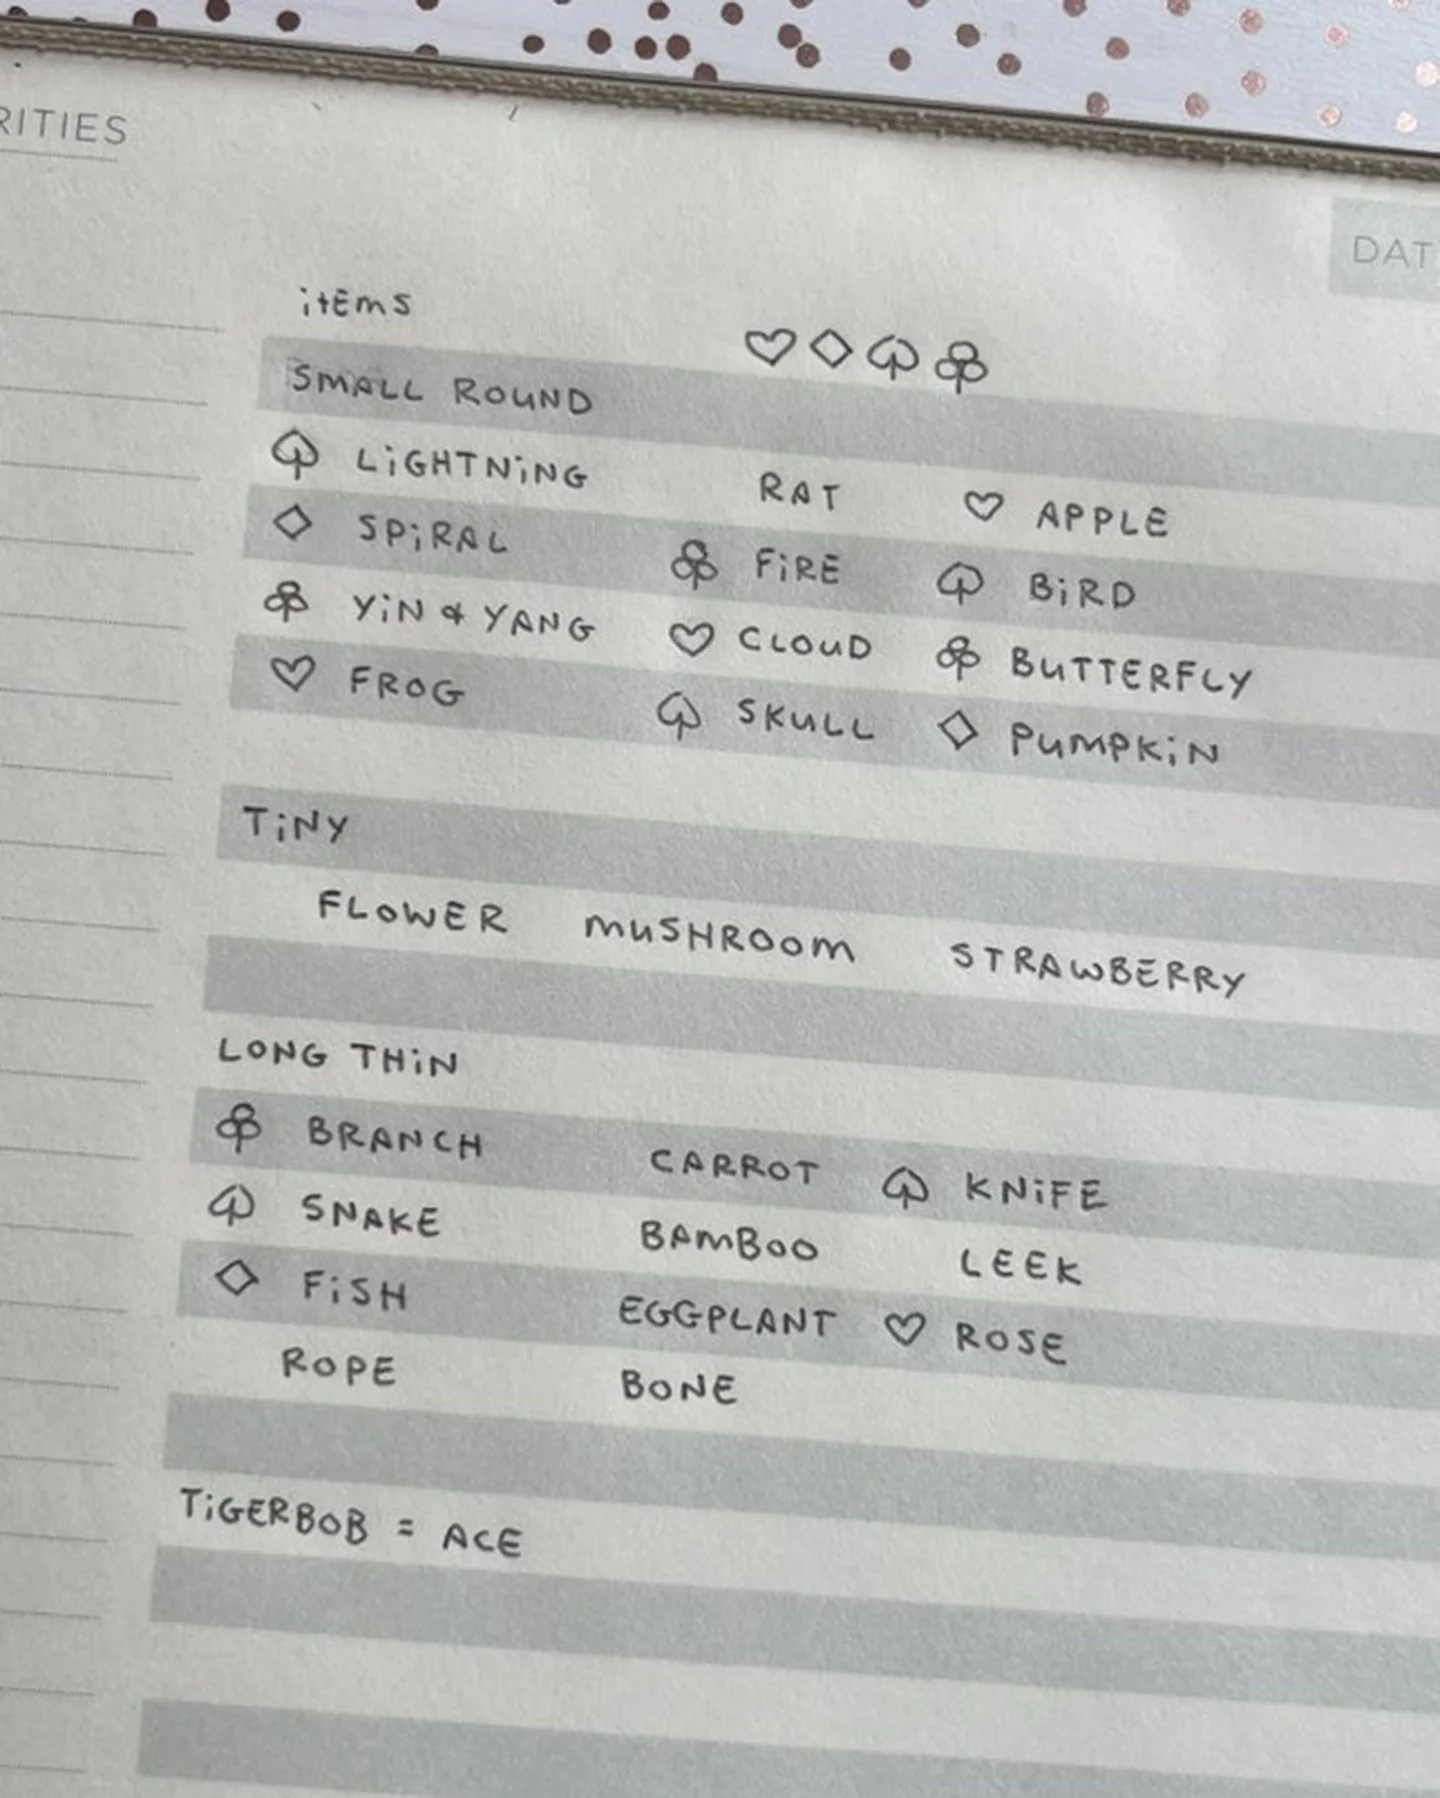 RITIES
DAT
itEmS
♡ ◇ ♤ ♧
SMALL ROUND
♤ LiGHTNiNG RAT ♡ APPLE
◇ SPiRAL ♧ FiRE ♤ BiRD
♧ YiN & YANG ♡ CLOUD ♧ BUTTERFLY
♡ FROG ♤ SKULL ◇ PUMPKiN
TiNY
FLOWER MUSHROOM STRAWBERRY
LONG THiN
♧ BRANCH CARROT ♤ KNiFE
♤ SNAKE BAMBOO LEEK
◇ FiSH EGGPLANT ♡ ROSE
ROPE BONE
TiGERBOB = ACE